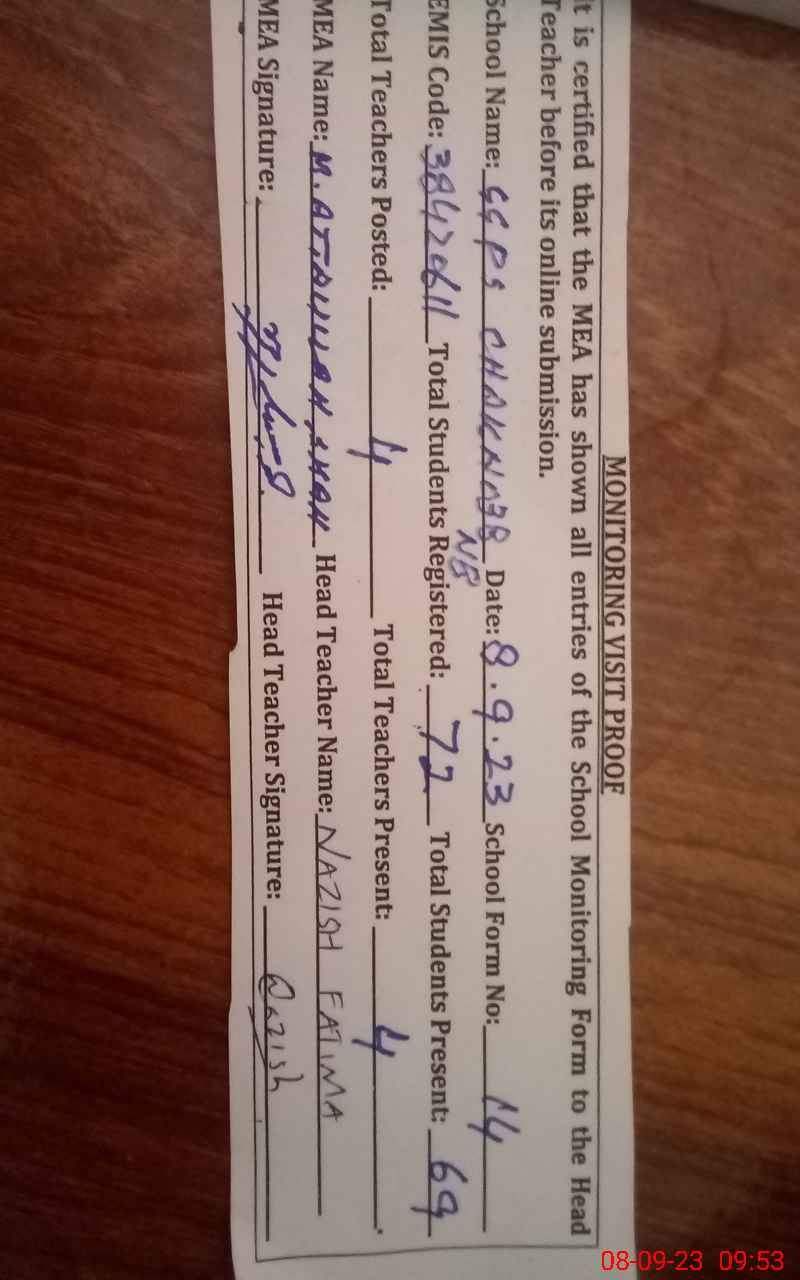 MONITORING VISIT PROOF
It is certified that the MEA has shown all entries of the School Monitoring Form to the Head
Teacher before its online submission.
School Name: GGPS CHAK NO 38 NB Date: 8.9.23 School Form No: 14
EMIS Code: 38420611 Total Students Registered: 72 Total Students Present: 69
Total Teachers Posted: 4 Total Teachers Present: 4
MEA Name: M. ATAULLAH SHAH Head Teacher Name: NAZISH FATIMA
MEA Signature: Head Teacher Signature: Nazish
08-09-23 09:53